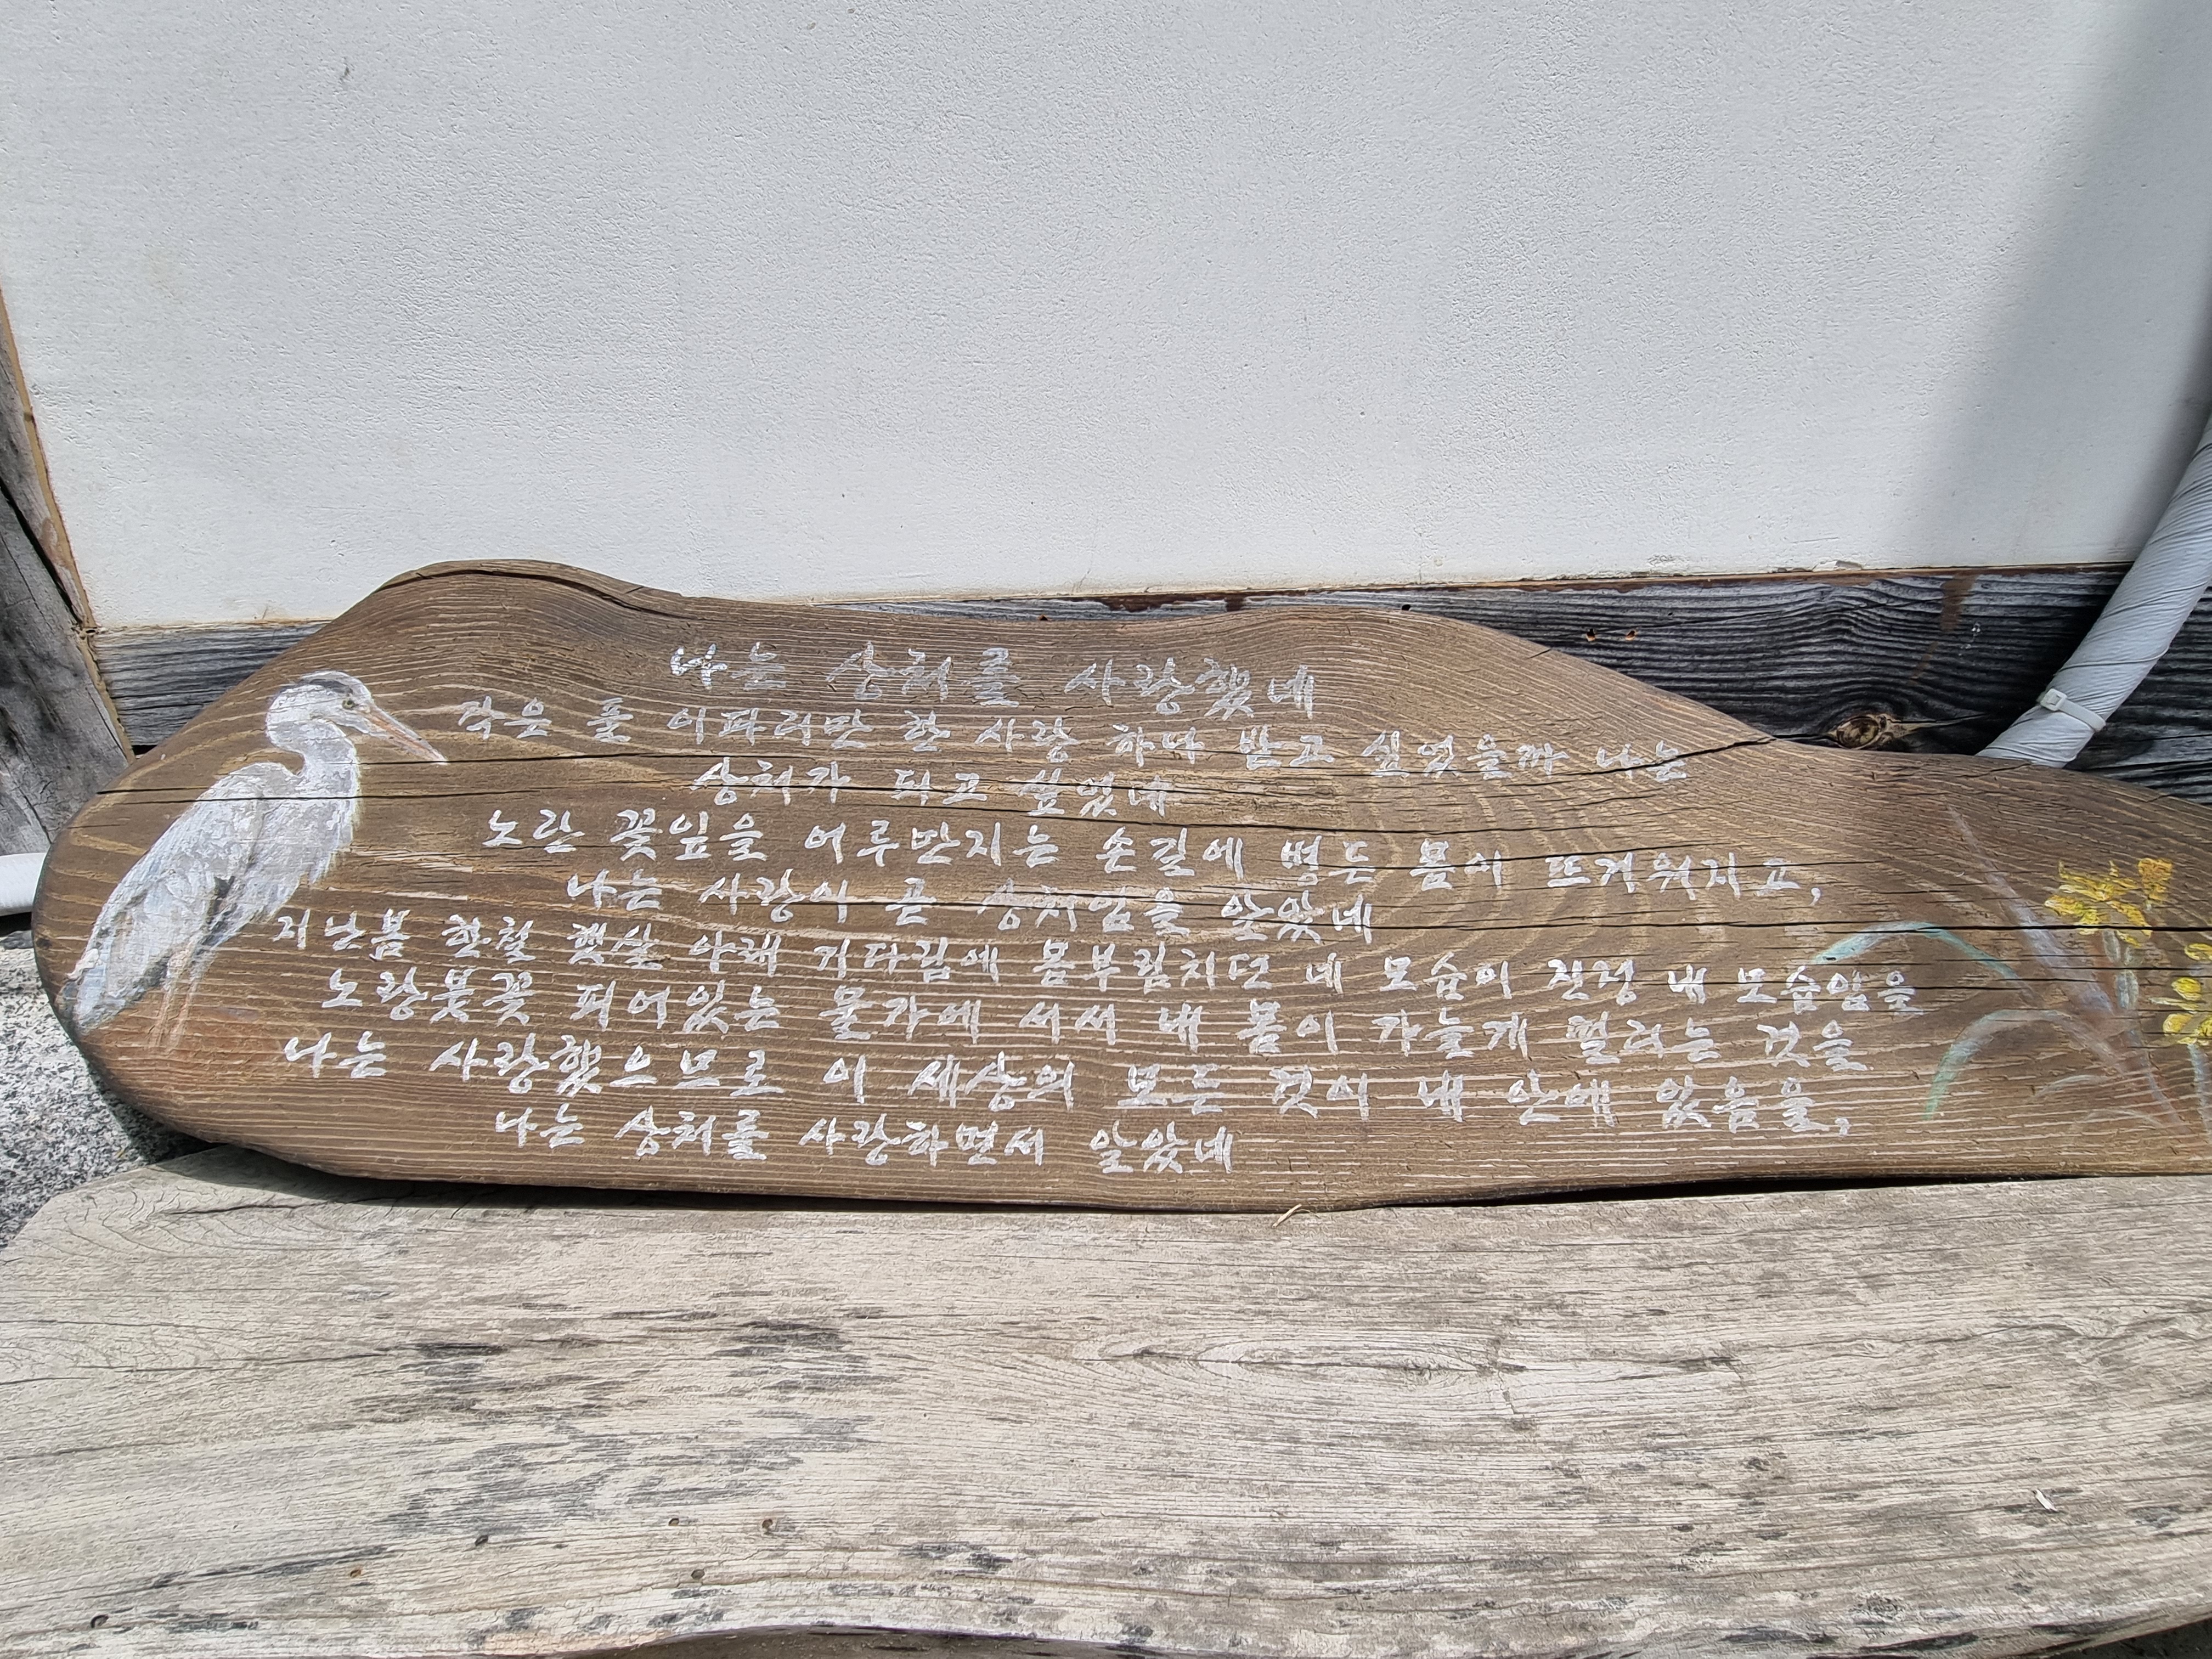 나는 상처를 사랑했네
작은 풀 이파리만 한 사랑 하나 받고 싶었을까 나는
상처가 되고 싶었네
노란 꽃잎을 어루만지는 손길에 병든 몸이 뜨거워지고,
나는 사랑이 곧 상처임을 알았네
지난봄 한철 햇살 아래 기다림에 몸부림치던 네 모습이 진정 내 모습임을
노랑붓꽃 피어있는 물가에 서서 내 몸이 가늘게 떨리는 것을
나는 사랑했으므로 이 세상의 모든 것이 내 안에 있음을,
나는 상처를 사랑하면서 알았네